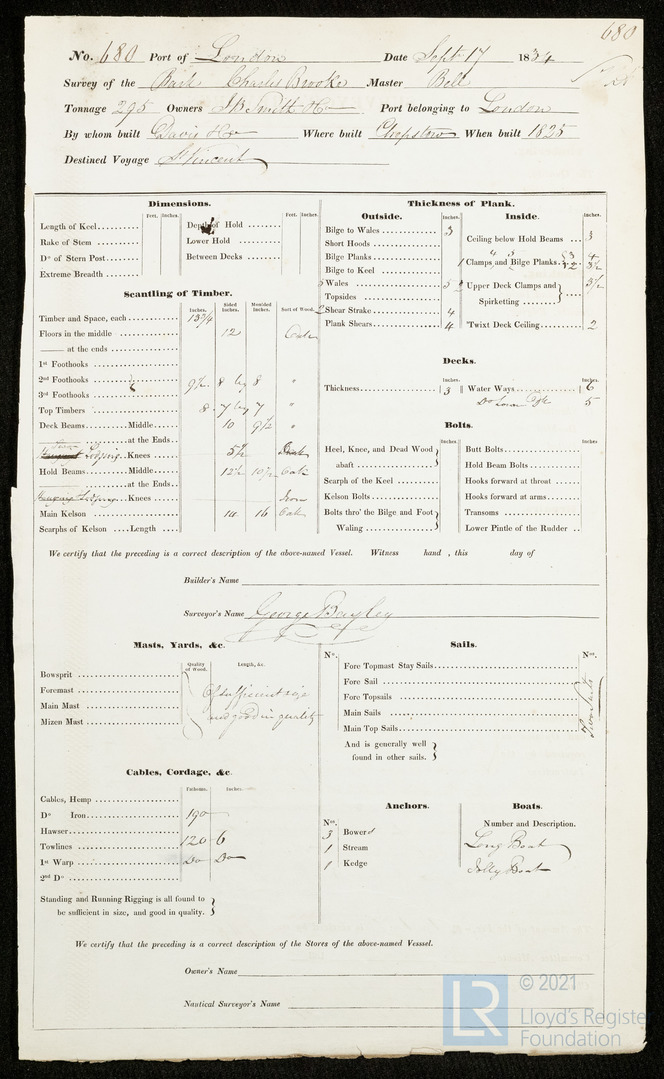 680
No. 680 Port of London Date Sept 17 1834
Survey of the Bark Charles Brooke Master Bell
Tonnage 295 Owners J B Smith & Co Port belonging to London
By whom built Davis & Co Where built Chepstow When built 1825
Destined Voyage St Vincent
Dimensions.
Feet. Inches. Feet. Inches.
Length of Keel
Depth of Hold
Rake of Stem
Lower Hold
Do of Stern Post
Between Decks
Extreme Breadth
Scantling of Timber.
Inches. Sided Inches. Moulded Inches. Sort of Wood.
Timber and Space, each 13 3/4
Floors in the middle 12 Oak
—— at the ends
1st Foothooks
2nd Foothooks 9 1/2 8 by 8 "
3rd Foothooks
Top Timbers 8 7 by 7 "
Deck Beams Middle 10 9 1/2 "
at the Ends
Lodging Knees 5 1/2
Hold Beams Middle 12 1/2 10 1/2 Oak
at the Ends
Lodging Knees Iron
Main Kelson 14 16 Oak
Scarphs of Kelson Length
Thickness of Plank.
Outside.
Inches.
Bilge to Wales 3
Short Hoods
Bilge Planks
Bilge to Keel
Wales 5
Topsides
2 Shear Strake 4
Plank Shears 4
Inside.
Inches.
Ceiling below Hold Beams 3
Clamps and Bilge Planks 3 4 2 3 1/2
Upper Deck Clamps and Spirketting 3 1/2
Twixt Deck Ceiling 2
Decks.
Inches. Inches
Thickness 3
Water Ways 6
Do Lower 5
Bolts.
Inches. Inches
Heel, Knee, and Dead Wood abaft
Scarph of the Keel
Kelson Bolts
Bolts thro' the Bilge and Foot Waling
Butt Bolts
Hold Beam Bolts
Hooks forward at throat
Hooks forward at arms
Transoms
Lower Pintle of the Rudder
We certify that the preceding is a correct description of the above-named Vessel. Witness hand, this day of
Builder's Name
Surveyor's Name George Bayley
Masts, Yards, &c.
Quality of Wood. Length, &c.
Bowsprit
Foremast
Main Mast
Mizen Mast
Of sufficient size
and good in quality
Sails.
No. Nos.
Fore Topmast Stay Sails
Fore Sail
Fore Topsails
Main Sails
Main Top Sails
Two Suits
And is generally well
found in other sails.
Cables, Cordage, &c.
Fathoms. Inches.
Cables, Hemp
Do Iron 190
Hawser
Towlines 120 6
1st Warp Do Do
2nd Do
Standing and Running Rigging is all found to
be sufficient in size, and good in quality.
Anchors.
Nos.
3 Bowers
1 Stream
1 Kedge
Boats.
Number and Description.
Long Boat
Jolly Boat
We certify that the preceding is a correct description of the Stores of the above-named Vesssel.
Owner's Name
Nautical Surveyor's Name
LR
© 2021
Lloyd's Register
Foundation